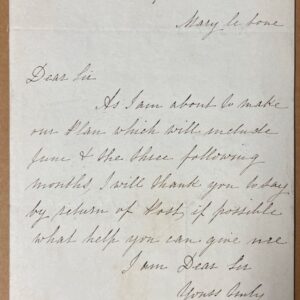 Mary le bone
Dear Sir
As I am about to make
our Plan which will include
June & the three following
months, I will thank you to say
by return of Post, if possible
what help you can give me
I am Dear Sir
Yours truly